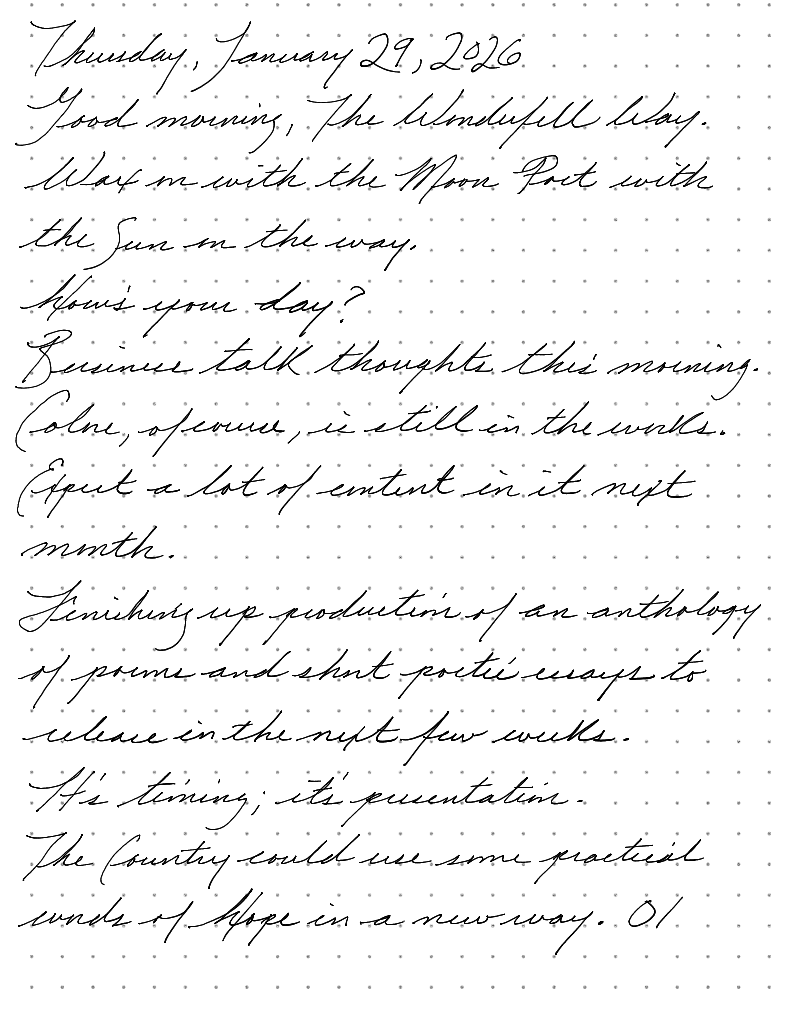 Thursday, January 29, 2026
Good morning, The Wonderfell Way.
Wax on with the Moon Poet with
the Sun on the way.
How's your day?
Business talk thoughts this morning.
of course, is still in the works.
Expect a lot of content in it next
month.
Finishing up production of an anthology
of poems and short poetic essays to
release in the next few weeks.
It's timing; it's presentation.
The Country could use some practical
words of Hope in a new way. 01